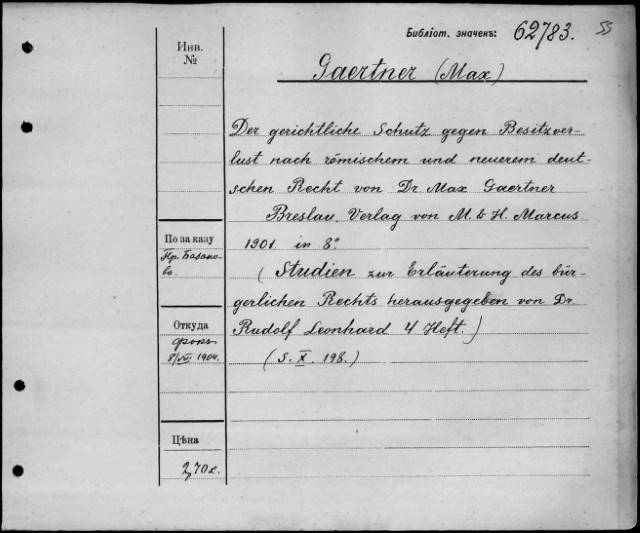 Библіот. значенъ: 62783. 55
Инв.
№
Gaertner (Max)
Der gerichtliche Schutz gegen Besitzver-
lust nach römischem und neuerem deut-
schen Recht von Dr. Max Gaertner
Breslau. Verlag von M. & H. Marcus
По заказу
Пр. Базано-
ва.
1901. in 8°
(Studien zur Erläuterung des bür-
gerlichen Rechts herausgegeben von Dr.
Rudolf Leonhard 4 Heft.)
(S. X. 198.)
Откуда
Фокъ
8/VII 1904.
Цѣна
2,70 к.